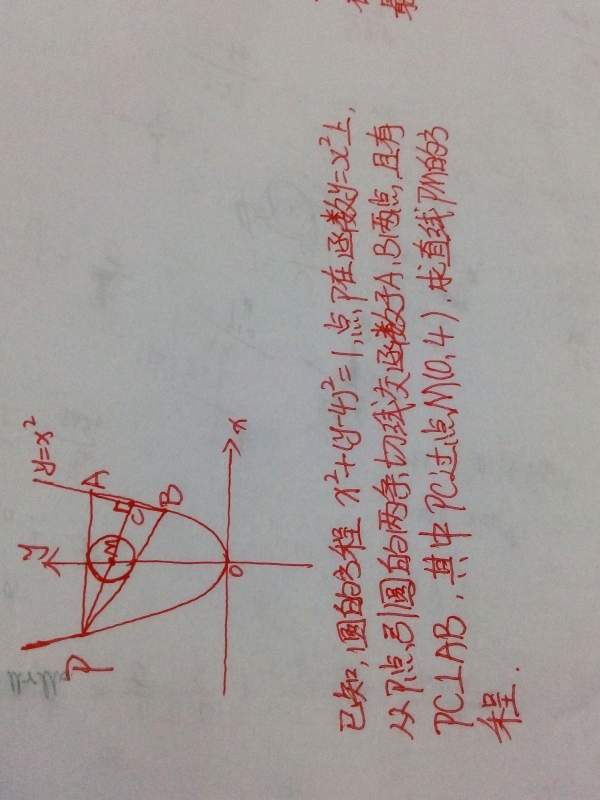 y=x²
y
A
P
M
C
B
x
O
已知,圆的方程 x²+(y-4)²=1,点P在函数y=x²上,
从P点引圆的两条切线交函数于A、B两点,且有
PC⊥AB,其中PC过点M(0,4).求直线PM的方
程.